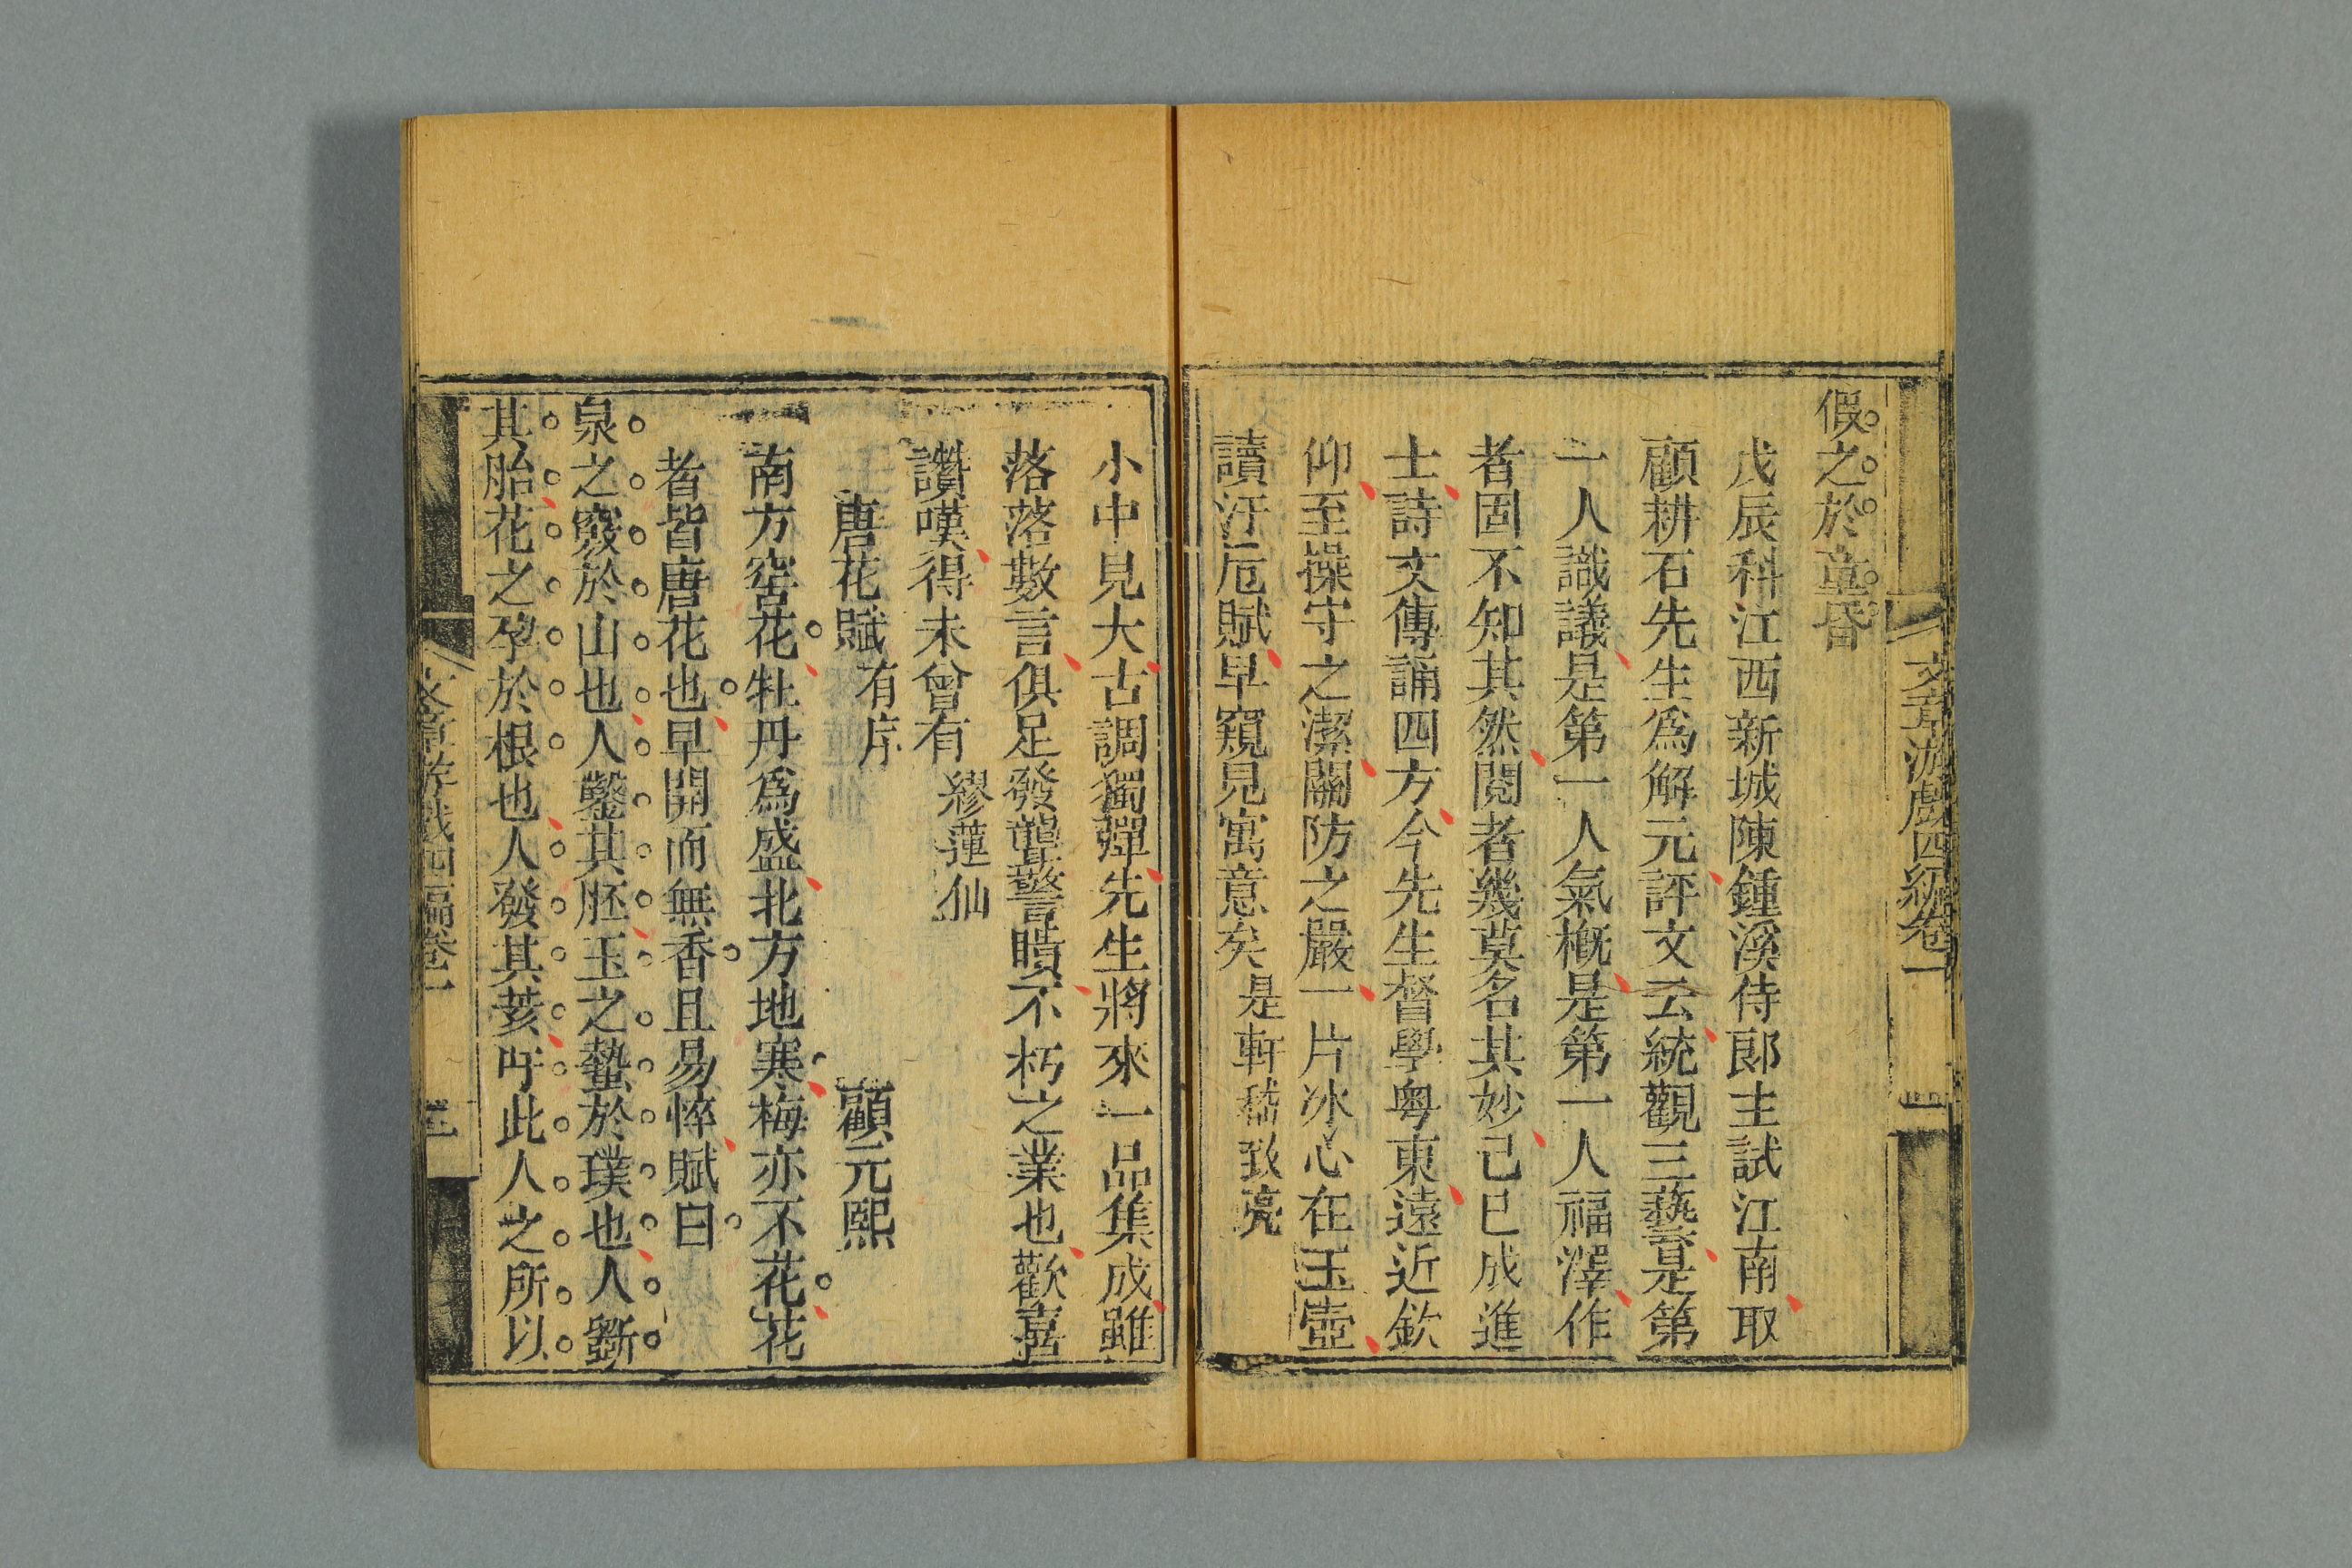 文章游戲四編卷一
假之於童昏
戊辰科江西新城陳鍾溪侍郎主試江南取
顧耕石先生爲解元評文云統觀三藝是第
一人識議是第一人氣概是第一人福澤作
者固不知其然閱者幾莫名其妙己巳成進
士詩文傳誦四方今先生督學粤東遠近欽
仰至操守之潔關防之嚴一片冰心在玉壺
讀汙巵賦早窺見寓意矣 是軒嵇致堯
小中見大古調獨彈先生將來一品集成雖
落落數言俱足發聾警瞶不朽之業也歡喜
讚嘆得未曾有 繆蓮仙
唐花賦 有序 顧元熙
南方窖花牡丹爲盛北方地寒梅亦不花花
者皆唐花也早開而無香且易悴賦曰
泉之竅於山也人鑿其胚玉之蟄於璞也人斵
其胎花之孕於根也人發其荄吁此人之所以
文章游戲四編卷一 三